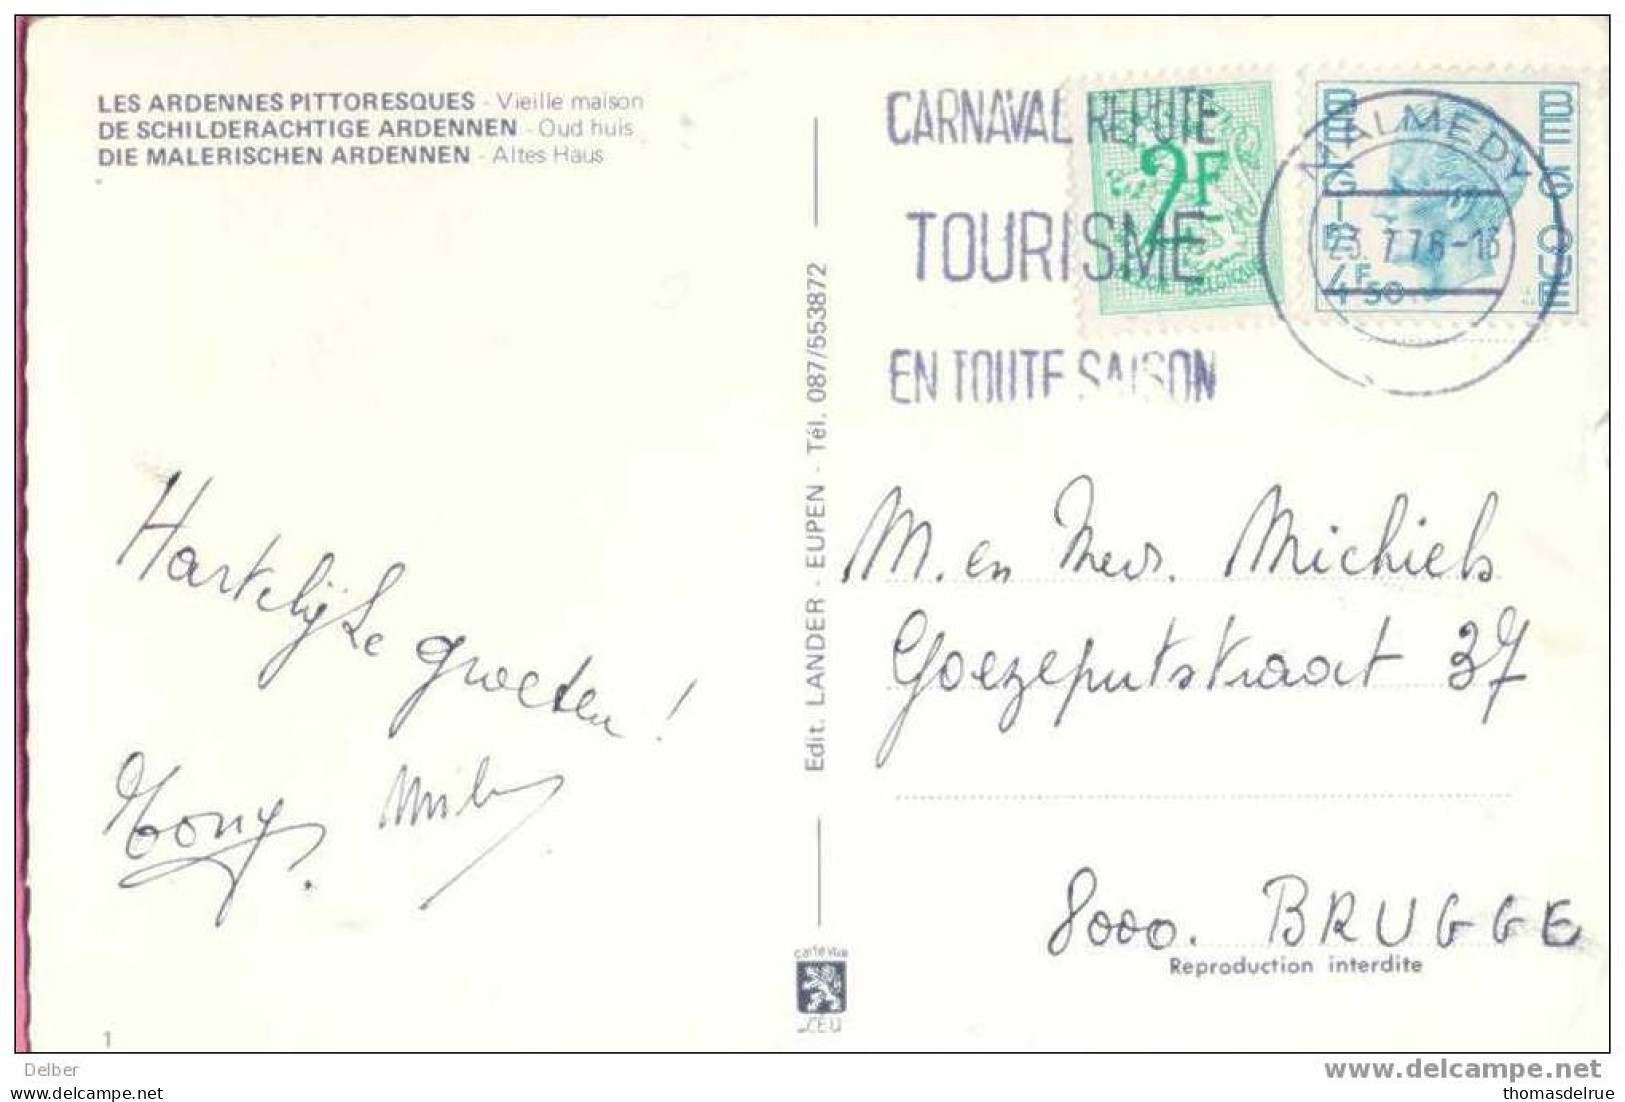 LES ARDENNES PITTORESQUES - Vieille maison
DE SCHILDERACHTIGE ARDENNEN - Oud huis
DIE MALERISCHEN ARDENNEN - Altes Haus
CARNAVAL REPUTE
TOURISME
EN TOUTE SAISON
2F
BELGIE BELGIQUE
BELGIE
BELGIQUE
4F50
MALMEDY
7.76-18
Edit. LANDER - EUPEN - Tél. 087/553872
Hartelijke groeten!
Tony.
M. en Mevr. Michiels
Goezeputstraat 37
8000. BRUGGE
Reproduction interdite
carte vue
CEU
1
Delber
www.delcampe.net
thomasdelrue